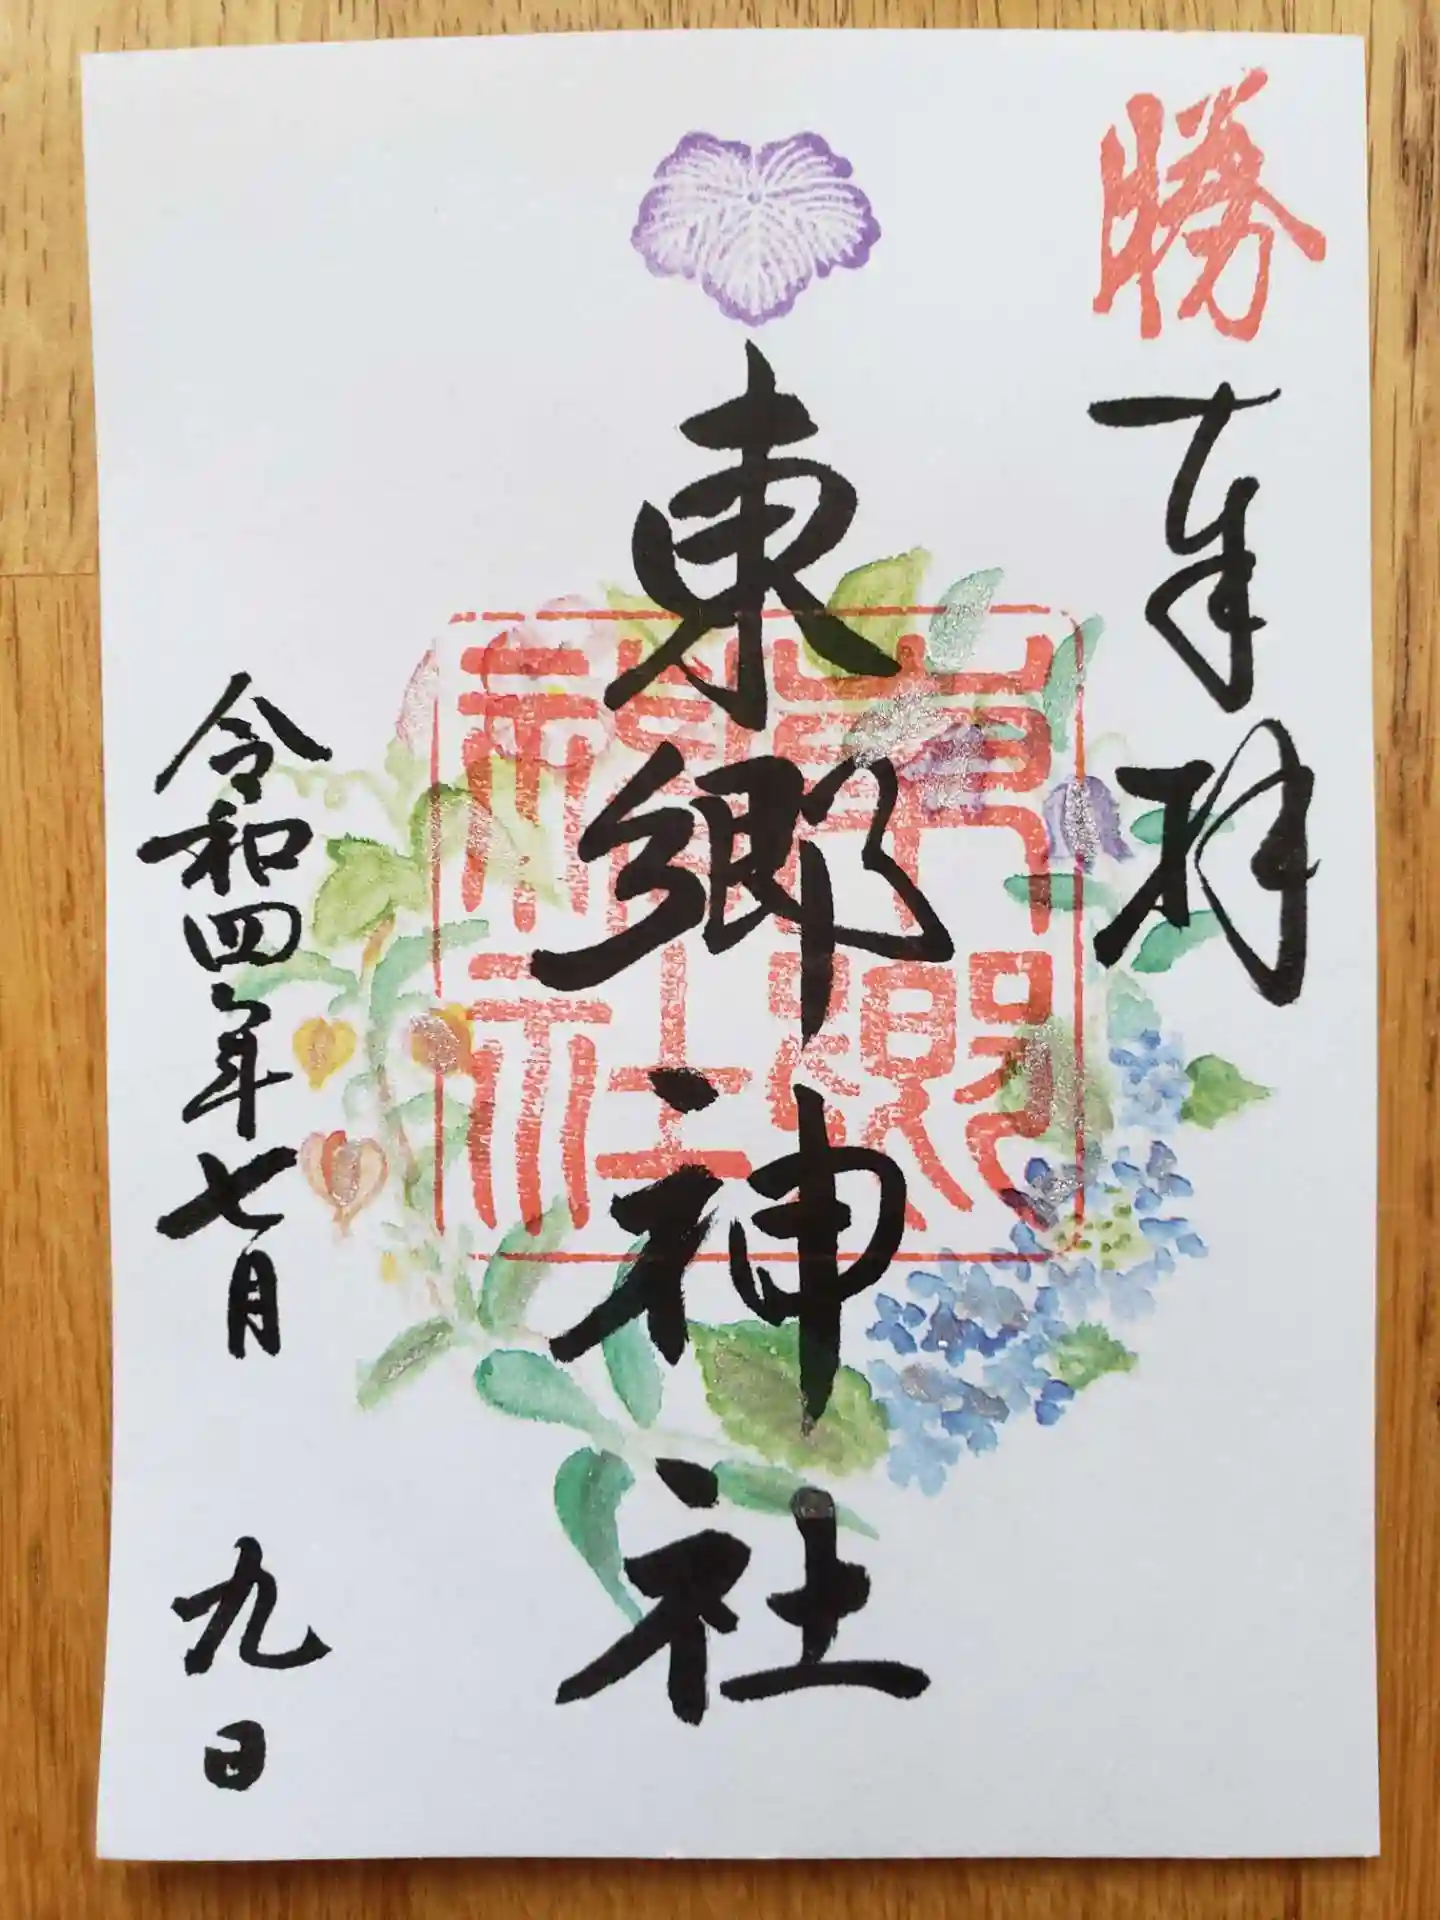 勝
奉拝
東郷神社
東郷神社
令和四年七月九日